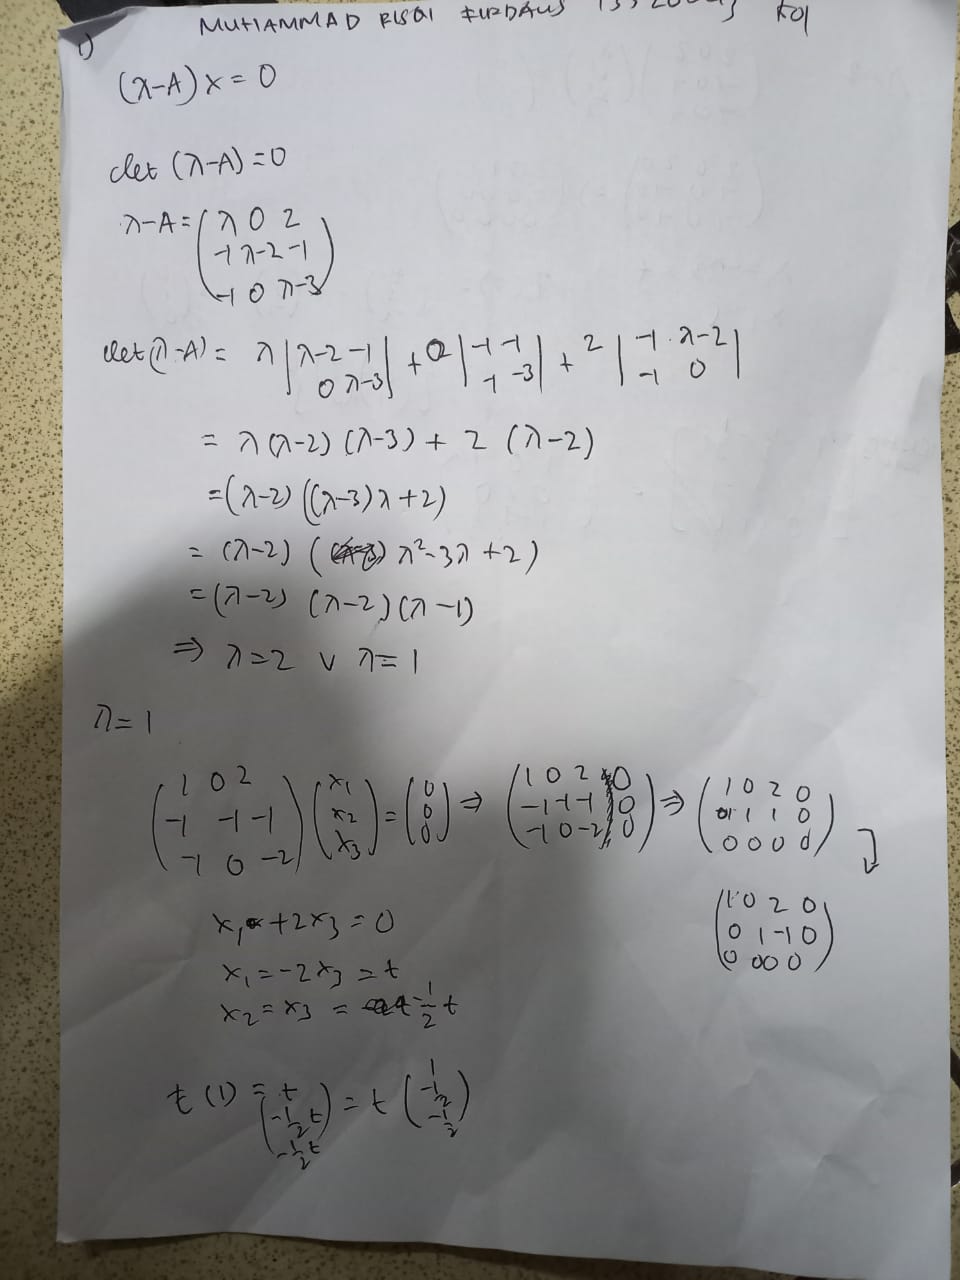 MUHAMMAD RISQI FIRDAUS
1)
(λ-A) x = 0
det (λ-A) = 0
λ-A = ( λ 0 2
-1 λ-2 -1
-1 0 λ-3 )
det(λ-A) = λ | λ-2 -1 | + 0 | -1 -1 | + 2 | -1 λ-2 |
0 λ-3 -1 -3 -1 0
= λ (λ-2) (λ-3) + 2 (λ-2)
= (λ-2) ((λ-3) λ + 2)
= (λ-2) ( λ²-3λ + 2)
= (λ-2) (λ-2) (λ-1)
⇒ λ=2 ∨ λ=1
λ=1
( 1 0 2 ) ( x₁ ) = ( 0 ) ⇒ ( 1 0 2 | 0 ) ⇒ ( 1 0 2 0 )
-1 -1 -1 x₂ 0 -1 -1 -1 | 0 0 1 1 0
-1 0 -2 x₃ 0 -1 0 -2 | 0 0 0 0 0
( 1 0 2 0
0 1 -1 0
0 0 0 0 )
x₁ + 2x₃ = 0
x₁ = -2x₃ = t
x₂ = x₃ = -1/2 t
t (1) = ( t ) = t ( 1 )
-1/2 t -1/2
-1/2 t -1/2